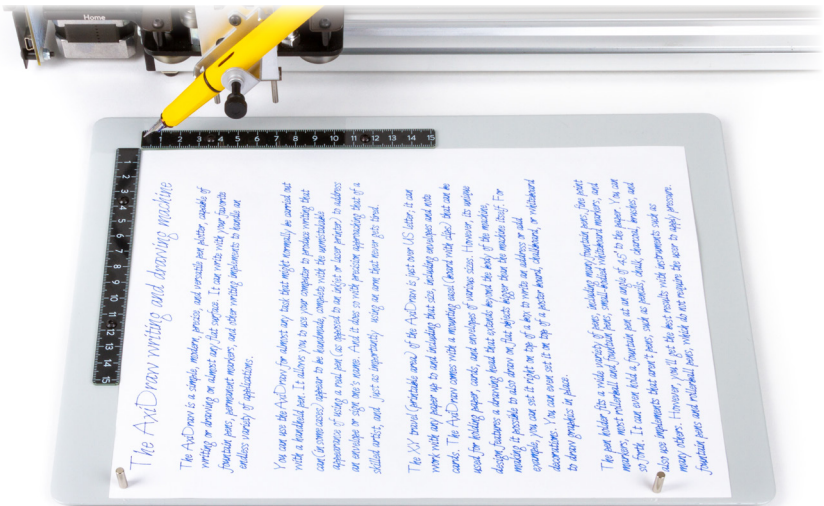 Home
1 2 3 4 5 6 7 8 9 10 11 12 13 14 15
1 2 3 4 5 6 7 8 9 10 11 12 13 14 15
The AxiDraw writing and drawing machine
The AxiDraw is a simple, modern, precise, and versatile pen plotter, capable of
writing or drawing on almost any flat surface. It can write with your favorite
fountain pens, permanent markers, and other writing implements to handle an
endless variety of applications.
You can use the AxiDraw for almost any task that might normally be carried out
with a handheld pen. It allows you to use your computer to produce writing that
can (in some cases) appear to be handmade, complete with the unmistakable
appearance of using a real pen (as opposed to an inkjet or laser printer) to address
an envelope or sign one's name. And it does so with precision approaching that of a
skilled artist, and just as importantly using an arm that never gets tired.
The XY travel (printable area) of the AxiDraw is just over US letter, it can
work with any paper up to and including that size, including envelopes and note
cards. The AxiDraw comes with a mounting easel (board with clips) that can be
used for holding paper, cards, and envelopes of various sizes. However, its unique
design features a drawing head that extends beyond the body of the machine,
making it possible to also draw on flat objects bigger than the machine itself. For
example, you can set it right on top of a box to write an address or add
decorations. You can even set it on top of a poster board, chalkboard, or whiteboard
to draw graphics in place.
The pen holder fits a wide variety of pens, including many fountain pens, fine point
markers, most rollerball and fountain pens, small-bodied whiteboard markers, and
so forth. It can even hold a fountain pen at an angle of 45° to the paper. You can
also use implements that aren't pens, such as pencils, chalk, charcoal, brushes, and
many others. However, you'll get the best results with instruments such as
fountain pens and rollerball pens, which do not require the user to apply pressure.